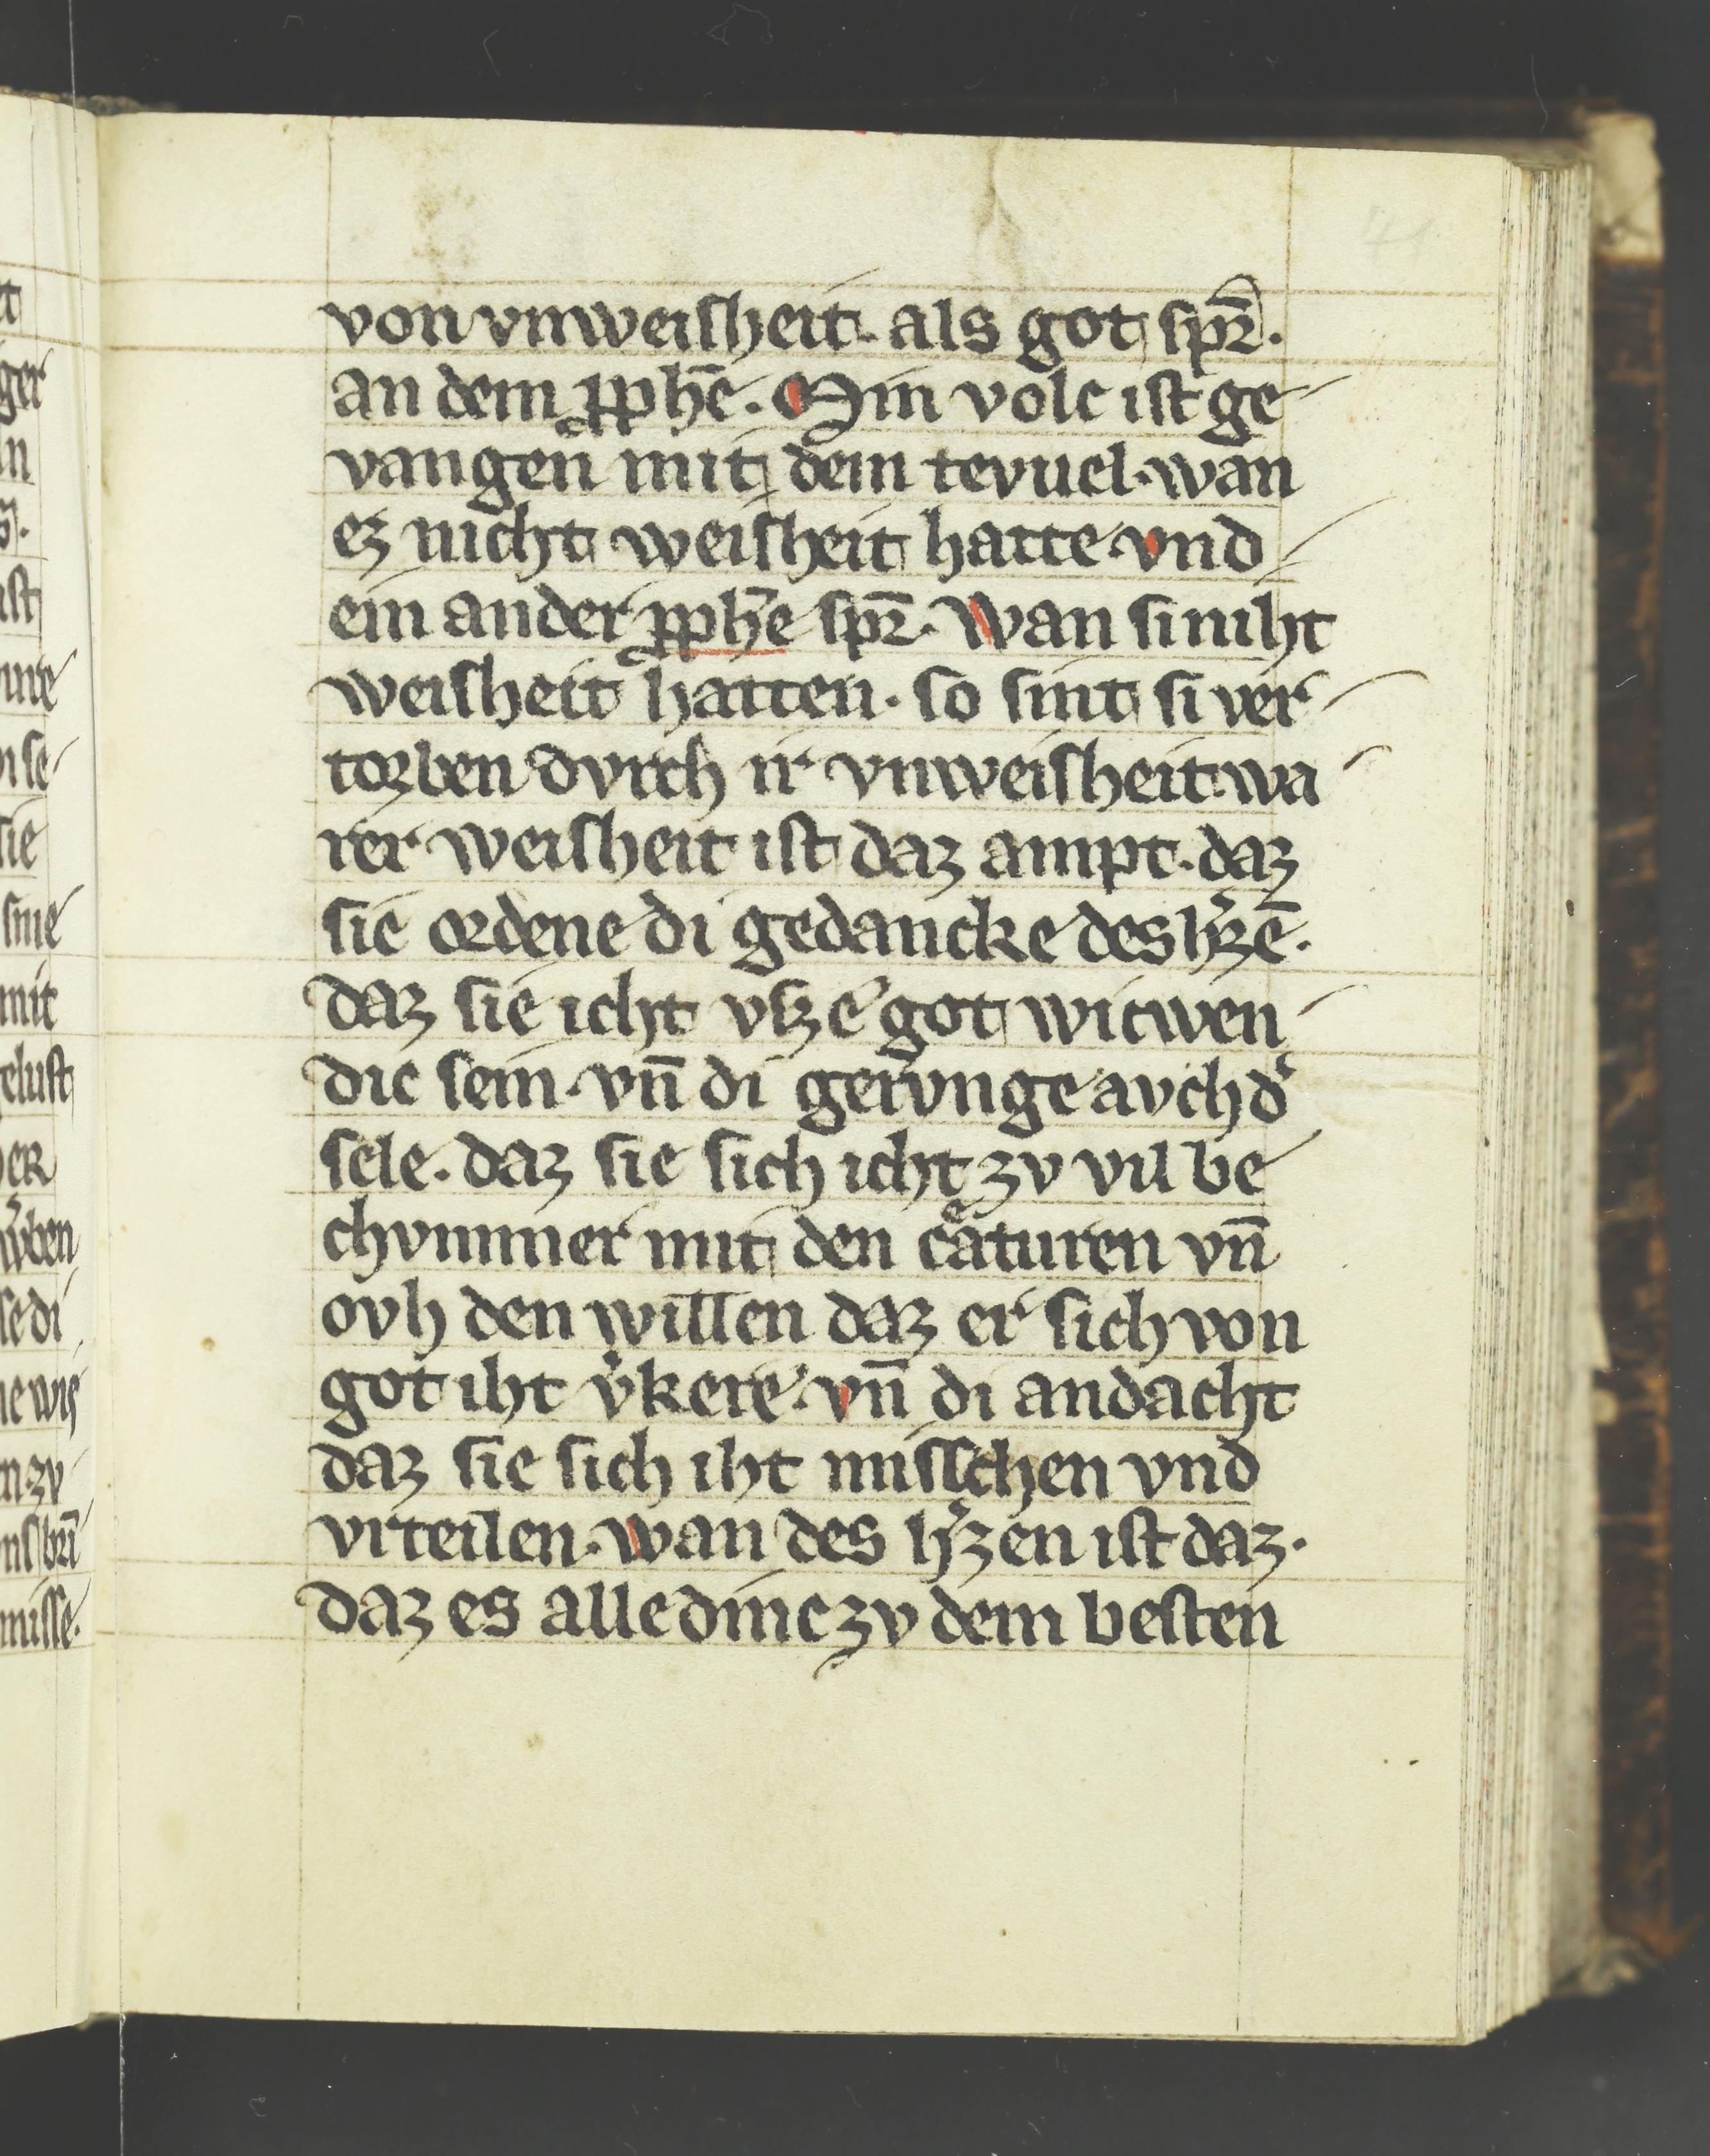 von vnweisheit. als got spr̄.
an dem ꝓphē. Min volc ist ge
vangen mit dem tevuel. wan
ez nicht weisheit hatte. vnd
ein ander ꝓphe spr̄. Wan si niht
weisheit hatten. so sint si ver
torben dvrch ir vnweisheit. wa
rer weisheit ist daz ampt. daz
sie ordene di gedancke des hͬzē.
daz sie icht vſzeͬ got witwen
dic sein. vn̄ di gervnge avch dͬ
sele. daz sie sich icht zv vil be
chvmmer mit den cͤaturen vn̄
ovh den willen daz er sich von
got iht vͬkere. vn̄ di andacht
daz sie sich iht misschen vnd
vrteilen. wan des hͬzen ist daz.
daz es alle dinc zv dem besten